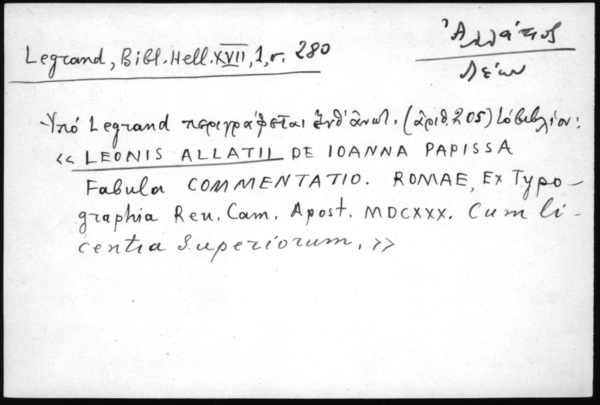 Ἀλλάτιος
Λέων
Legrand, Bibl. Hell. XVII, 1, σ. 280
Ὑπό Legrand περιγράφεται ἐνθ' ἀνωτ. (ἀριθ. 205) τό βιβλίον:
« LEONIS ALLATII DE IOANNA PAPISSA
Fabula COMMENTATIO. ROMAE, Ex Typo-
graphia Reu. Cam. Apost. MDCXXX. Cum li-
centia Superiorum. »